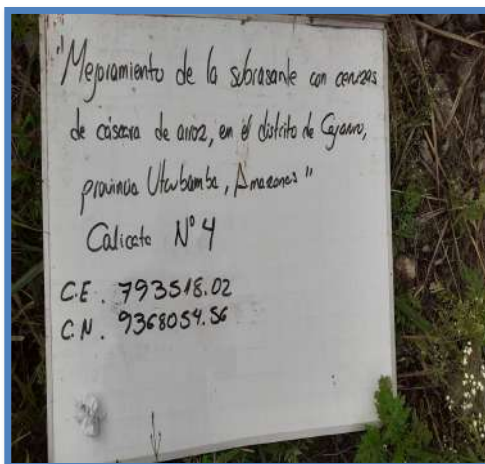 "Mejoramiento de la subrasante con cenizas
de cáscara de arroz, en el distrito de Cajaruro,
provincia Utcubamba, Amazonas"
Calicata N° 4
C.E. 793518.02
C.N. 9368054.56